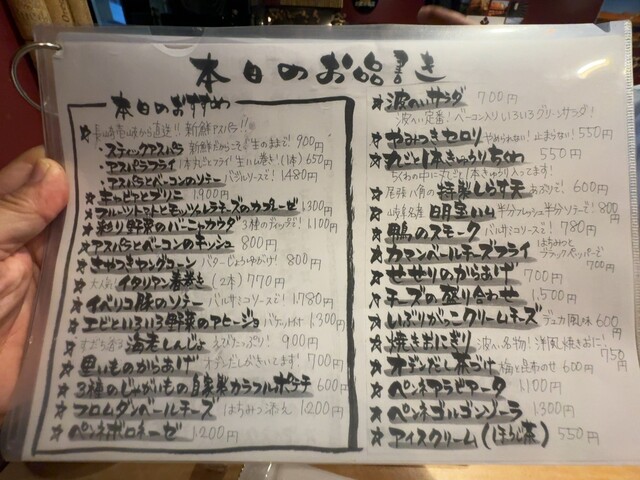 本日のお品書き
本日のおすすめ
☆ 長崎壱岐から直送!! 新鮮アスパラ!!
・スティックアスパラ 新鮮だからこそ!生のままで! 900円
・アスパラフライ 1本丸ごとフライ!生ハム巻き!(1本) 650
・アスパラとベーコンのソテー バジルソースで! 1480円
☆ 1,900円
☆ フルーツトマトとモッツァレラチーズのカプレーゼ 1300円
☆ 彩り野菜のバーニャカウダ 3種のディップで! 1,100円
☆ アスパラとベーコンのキッシュ 800円
☆ キャベつきヤングコーン バターじょうゆがけ! 800円
☆ 大人気! イタリアン春巻き (2本) 770円
☆ イベリコ豚のソテー バルサミコソースで! 1,780円
☆ エビといろいろ野菜のアヒージョ バケット付 1,300円
☆ 海老しんじょ えびたっぷり! 900円
☆ 里いものからあげ オデンだしがきいてます! 700円
☆ 3種のじゃがいもの自家製カラフルポテチ 600円
☆ フロムダンベールチーズ はちみつ添え 1,200円
☆ ペンネボロネーゼ 1,200円
☆ 波へいサラダ 700円
波へい定番!ベーコン入りいろいろグリーンサラダ!
☆ やみつきセロリ やめられない!止まらない! 550円
☆ 丸ごと1本きゅうりちくわ 550円
ちくわの中に丸ごと1本きゅうり入ってます!
☆ 尾張八角の特製しらす天 あおりで! 600円
☆ 岐阜名産 明宝ハム 半分フレッシュ半分ソテーで! 800円
☆ 鴨のスモーク バルサミコソースで! 780円
☆ カマンベールチーズフライ はちみつとブラックペッパーで 700円
☆ せせりのからあげ 700円
☆ チーズの盛り合わせ 1,500円
☆ いぶりがっこクリームチーズ デュカ風味 600円
☆ 焼きおにぎり 波へい名物!洋風焼きおに! 750円
☆ オデンだし茶づけ 梅と昆布のせ 600円
☆ ペンネアラビアータ 1,100円
☆ ペンネゴルゴンゾーラ 1,300円
☆ アイスクリーム(ほうじ茶) 550円